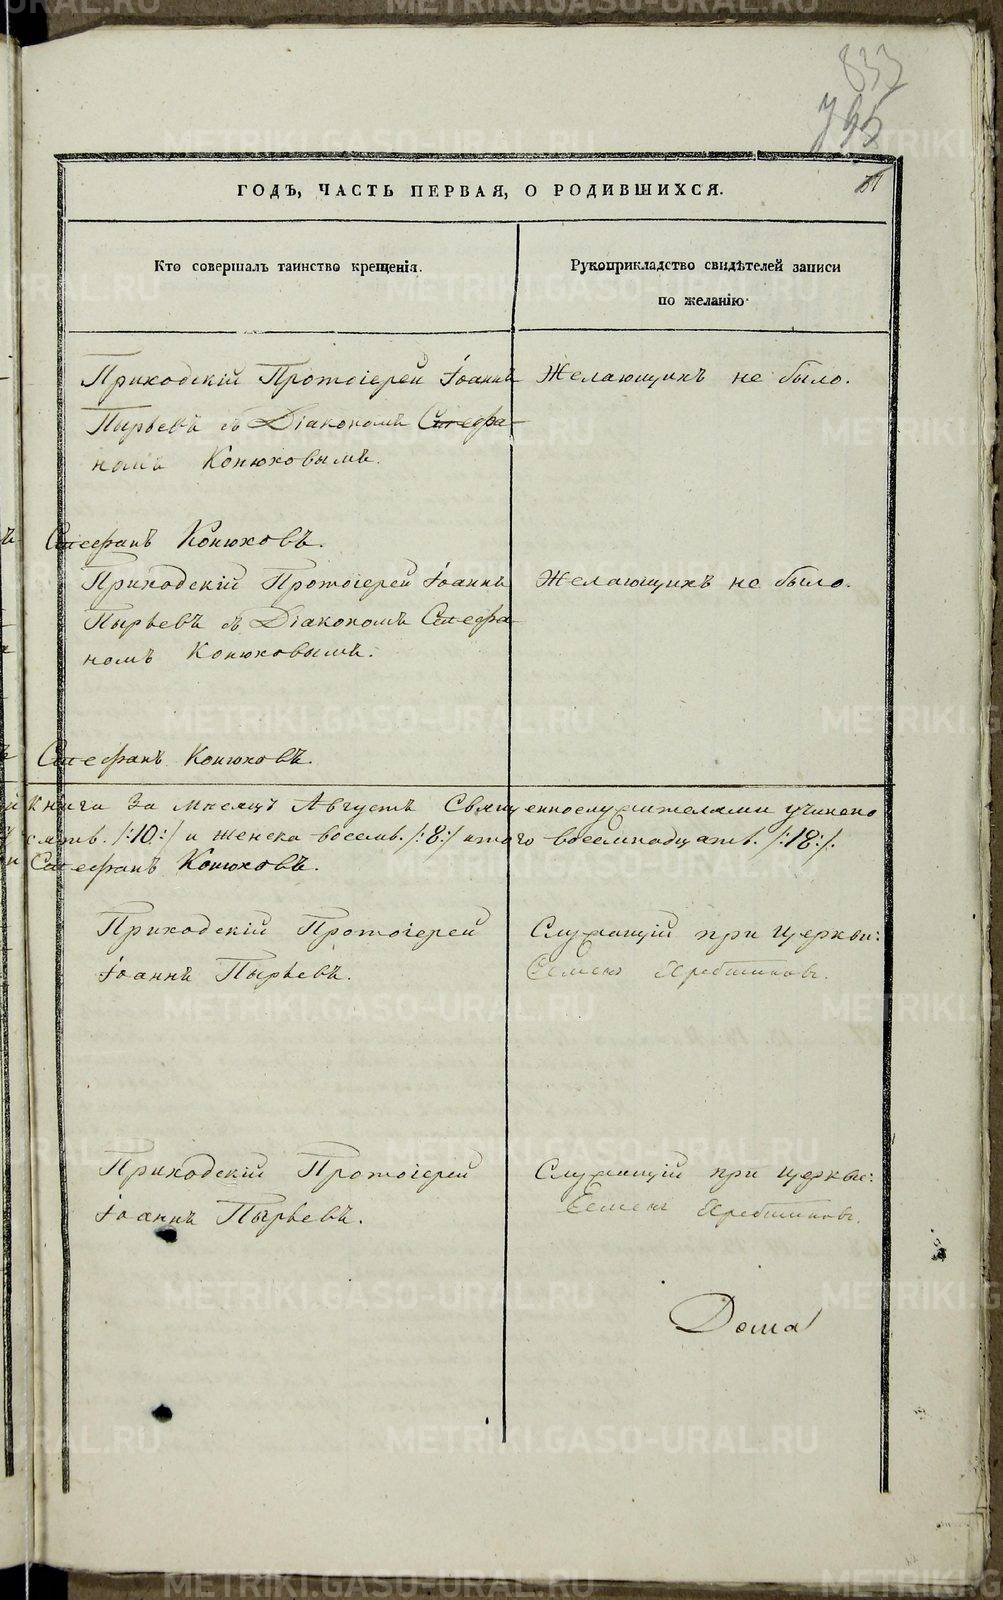 833
795
ГОДЪ, ЧАСТЬ ПЕРВАЯ, О РОДИВШИХСЯ.
Кто совершалъ таинство крещенія.
Рукоприкладство свидѣтелей записи
по желанію
Приходскій Протоіерей Іоаннъ
Пырьевъ съ Діакономъ Стефа-
номъ Конюховымъ.
Желающихъ не было.
Стефанъ Конюховъ.
Приходскій Протоіерей Іоаннъ
Пырьевъ съ Діакономъ Стефа-
номъ Конюховымъ.
Желающихъ не было.
Стефанъ Конюховъ.
книга за мѣсяцъ Августъ Священнослужителями учинено
/:10:/ и женска восемь. /:8:/ итого восемнадцать. /:18:/.
Стефанъ Конюховъ.
Приходскій Протоіерей
Іоаннъ Пырьевъ.
Служащій при церкви:
Семенъ
Приходскій Протоіерей
Іоаннъ Пырьевъ.
Служащій при церкви:
Семенъ
METRIKI.GASO-URAL.RU